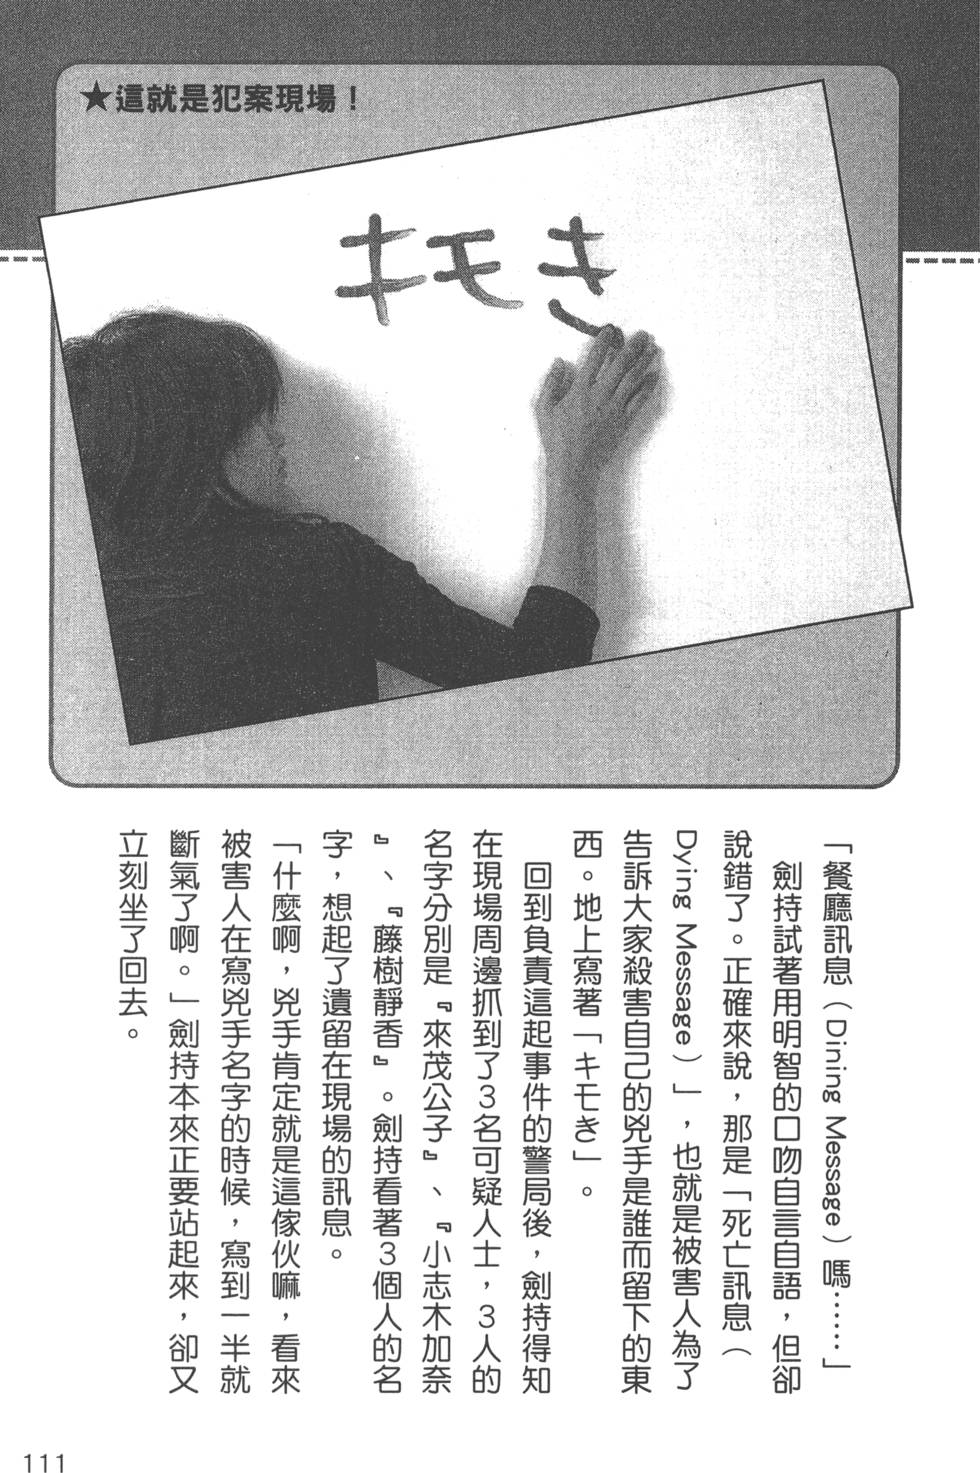 ★這就是犯案現場！
キモき
「餐廳訊息（Dining Message）嗎……」
劍持試著用明智的口吻自言自語，但卻
說錯了。正確來說，那是「死亡訊息（
Dying Message）」，也就是被害人為了
告訴大家殺害自己的兇手是誰而留下的東
西。地上寫著「キモき」。
回到負責這起事件的警局後，劍持得知
在現場周邊抓到了3名可疑人士，3人的
名字分別是『來茂公子』、『小志木加奈
』、『藤樹靜香』。劍持看著3個人的名
字，想起了遺留在現場的訊息。
「什麼啊，兇手肯定就是這傢伙嘛，看來
被害人在寫兇手名字的時候，寫到一半就
斷氣了啊。」劍持本來正要站起來，卻又
立刻坐了回去。
111